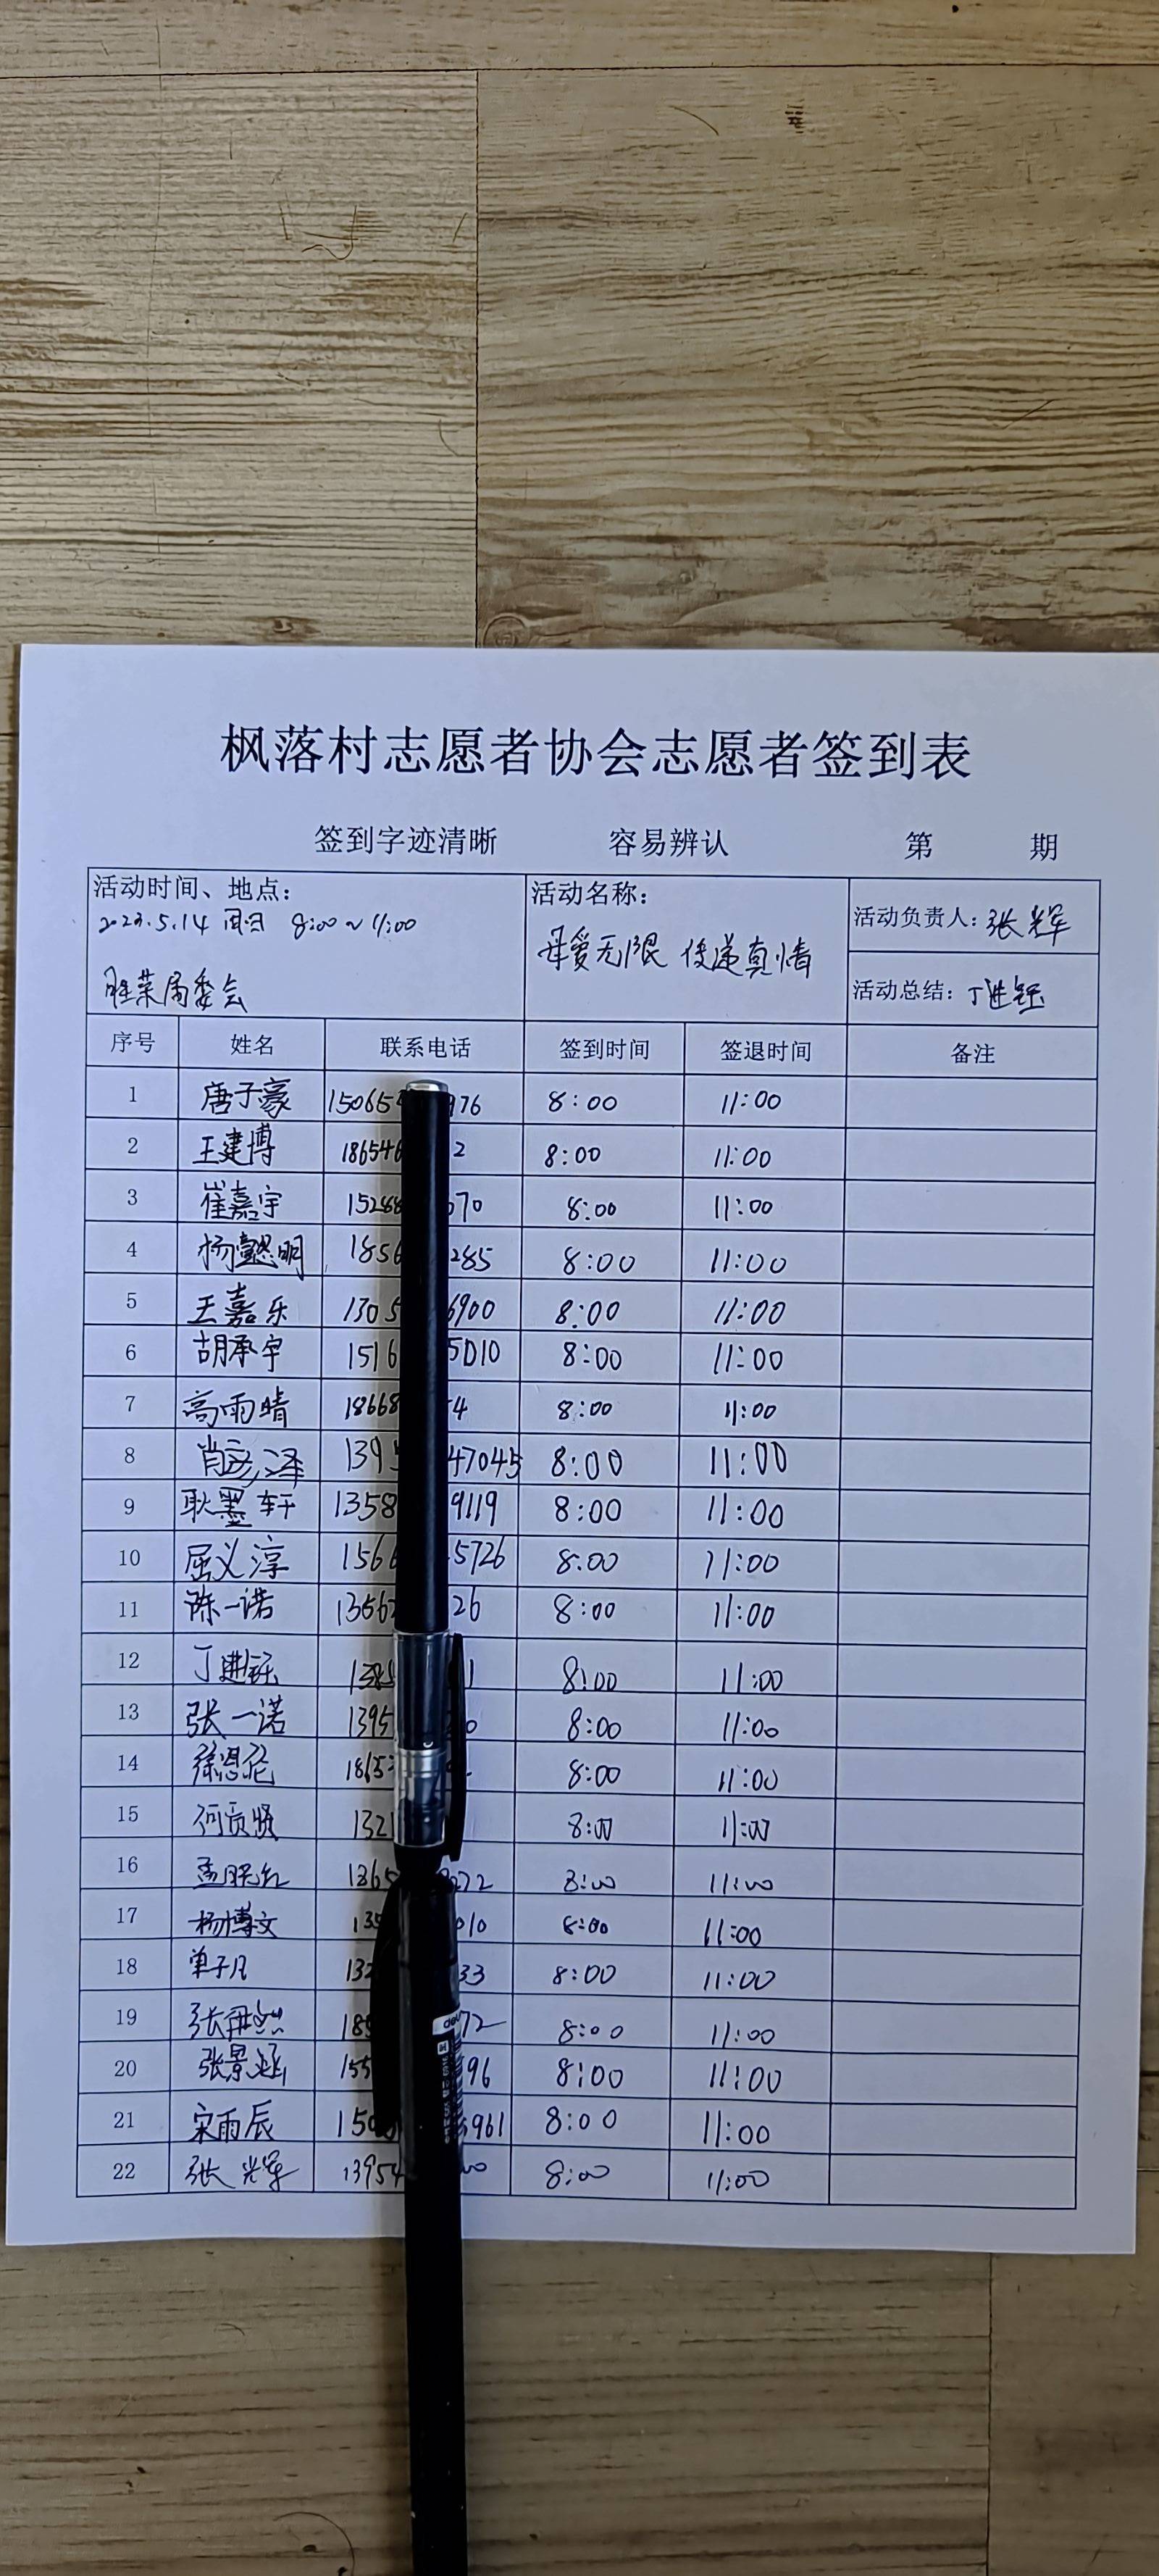 枫落村志愿者协会志愿者签到表
签到字迹清晰 容易辨认 第 期
活动时间、地点:
2023.5.14 周日 8:00~11:00
胜荣居委会
活动名称:
母爱无限 传递真情
活动负责人: 张光辉
活动总结: 丁进钰
序号 姓名 联系电话 签到时间 签退时间 备注
1 唐子豪 15065 976 8:00 11:00
2 王建博 186546 2 8:00 11:00
3 崔嘉宇 15288 670 8:00 11:00
4 杨懿明 1856 285 8:00 11:00
5 王嘉乐 1305 6900 8:00 11:00
6 胡承宇 1516 5010 8:00 11:00
7 高雨晴 18668 4 8:00 11:00
8 肖彦泽 1395 47045 8:00 11:00
9 耿墨轩 1358 9119 8:00 11:00
10 屈义淳 156 5726 8:00 11:00
11 陈一诺 13562 26 8:00 11:00
12 丁进钰 1385 1 8:00 11:00
13 张一诺 1395 0 8:00 11:00
14 徐恩伦 1865 8:00 11:00
15 何贡贤 132 8:00 11:00
16 1365 272 8:00 11:00
17 杨博文 135 010 8:00 11:00
18 单子凡 132 33 8:00 11:00
19 张 185 72 8:00 11:00
20 张景涵 155 96 8:00 11:00
21 宋雨辰 150 961 8:00 11:00
22 张光辉 13954 00 8:00 11:00
deli